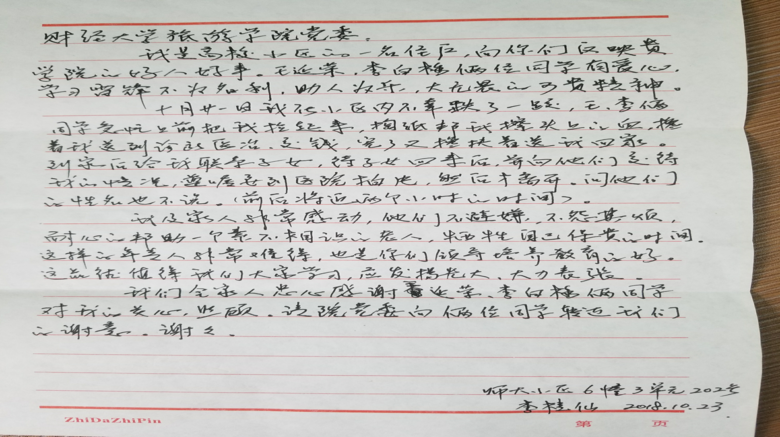 财经大学旅游学院党委。
我是高校小区的一名住户，向你们反映贵
学院的好人好事。王延荣，李白杨俩位同学有爱心，
学习雷锋不为名利，助人为乐，大无畏的可贵精神。
十月廿一日我在小区内不幸跌了一跤，王、李俩
同学急忙上前把我搀起来，掏纸帮我擦头上的血，搀
着我送到诊所医治，交钱，完了又搀扶着送我回家。
到家后给我联系子女，待子女回来后，前向他们交待
我的情况，并嘱看到医院拍片，然后才离开。问他们
的姓名也不说。（前后将近两个小时的时间）。
我及家人非常感动，他们不嫌，不怨其烦，
耐心的帮助一个素不相识的老人，牺牲自己保贵的时间。
这样的年青人非常难得，也是你们领导培养教育的好。
这品德值得我们大家学习，应发扬光大、大力表张。
我们全家人忠心感谢王延荣、李白杨俩同学
对我的关心，照顾。请院党委向俩位同学转达我们
的谢意。谢谢。
师大小区6幢3单元202号
李桂仙 2018.10.23.
ZhiDaZhiPin 第 页